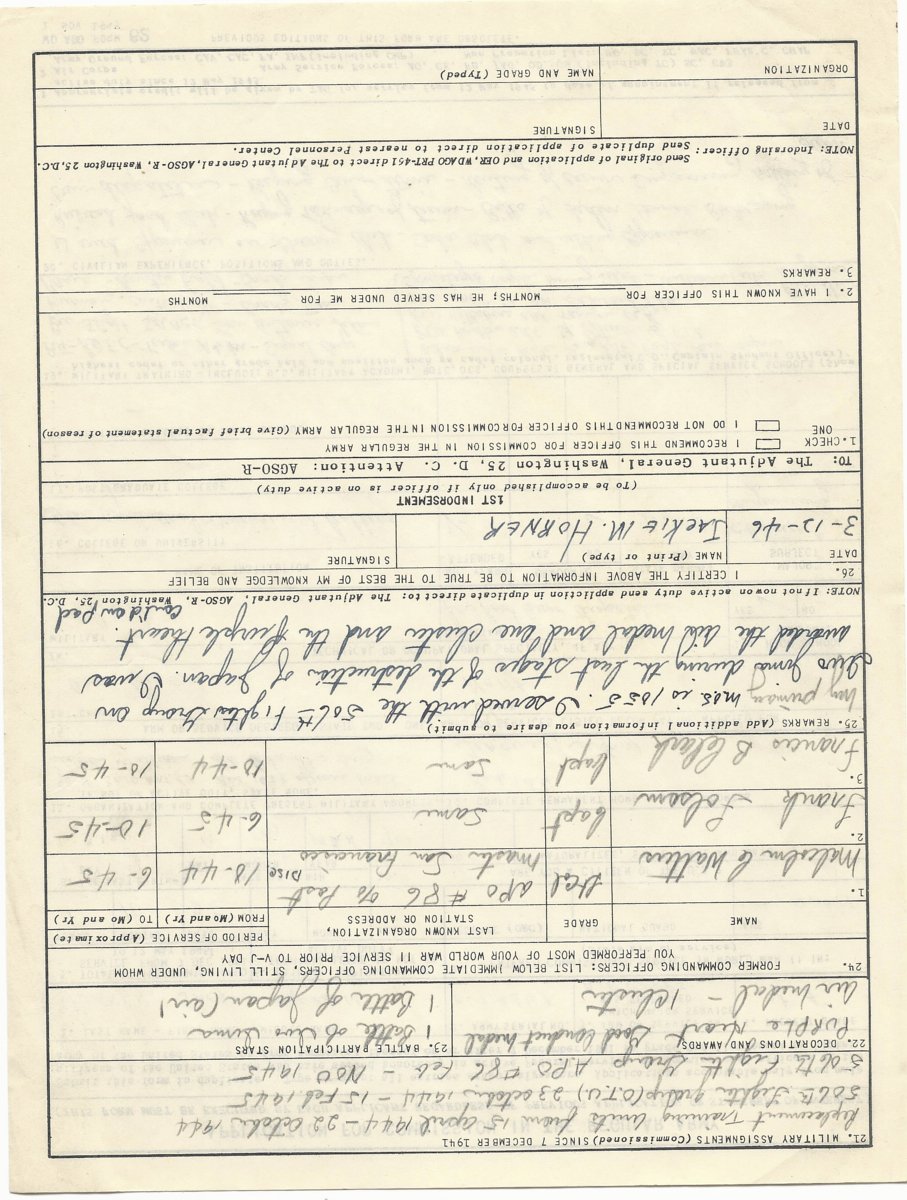 21. MILITARY ASSIGNMENTS (Commissioned) SINCE 7 DECEMBER 1941
Replacement Training Units from 15 april 1944 – 22 october 1944
506th Fighter group (O.T.U) 23 october 1944 – 15 Feb 1945
506th Fighter Group APO #86 Feb – Nov 1945
22. DECORATIONS AND AWARDS
PURPLE Heart Good Conduct Medal
Air Medal – 1 Cluster
23. BATTLE PARTICIPATION STARS
1 Battle of Iwo Jima
1 Battle of Japan (air)
24. FORMER COMMANDING OFFICERS: LIST BELOW IMMEDIATE COMMANDING OFFICERS, STILL LIVING, UNDER WHOM
YOU PERFORMED MOST OF YOUR WORLD WAR II SERVICE PRIOR TO V-J DAY
NAME GRADE LAST KNOWN ORGANIZATION, STATION OR ADDRESS PERIOD OF SERVICE (Approximate)
FROM (Mo and Yr) TO (Mo and Yr)
1. Malcolm C Watters APO #86 % Post Master San Francisco 10-44 6-45
2. Frank Folsom Capt Same 6-45 10-45
3. Francis B Clark Capt Same 10-44 10-45
25. REMARKS (Add additional information you desire to submit)
my primary MOS is 1055. I served with the 506th Fighter Group on
Iwo Jima during the last stages of the destruction of Japan. I was
awarded the air medal and one cluster and the Purple Heart.
NOTE: If not now on active duty send application in duplicate direct to: The Adjutant General, AGSO-R, Washington 25, D.C.
26. I CERTIFY THE ABOVE INFORMATION TO BE TRUE TO THE BEST OF MY KNOWLEDGE AND BELIEF
DATE NAME (Print or type) SIGNATURE
3-12-46 JACKIE M. HORNER
1ST INDORSEMENT
(To be accomplished only if officer is on active duty)
TO: The Adjutant General, Washington 25, D. C. Attention: AGSO-R
1. CHECK ONE
I RECOMMEND THIS OFFICER FOR COMMISSION IN THE REGULAR ARMY
I DO NOT RECOMMEND THIS OFFICER FOR COMMISSION IN THE REGULAR ARMY (Give brief factual statement of reason)
2. I HAVE KNOWN THIS OFFICER FOR MONTHS; HE HAS SERVED UNDER ME FOR MONTHS
3. REMARKS
NOTE: Indorsing Officer: Send original of application and OER, WD AGO PRT-451 direct to The Adjutant General, AGSO-R, Washington 25, D.C.
Send duplicate of application direct to nearest Personnel Center.
DATE SIGNATURE
ORGANIZATION NAME AND GRADE (Typed)